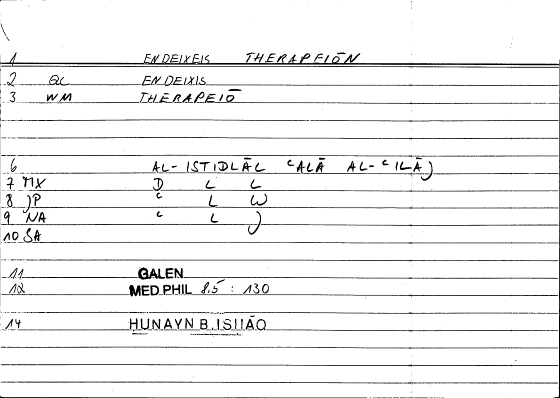 1 ENDEIXEIS THERAPEIŌN
2 QL ENDEIXIS
3 WM THERAPEIŌ
6 AL-ISTIDLĀL ʿALĀ AL-ʿILĀJ
7 MX D L L
8 JP ʿ L W
9 NA ʿ L J
10 SA
11 GALEN
12 MED.PHIL 8.5 : 130
14 HUNAYN B. ISHĀQ